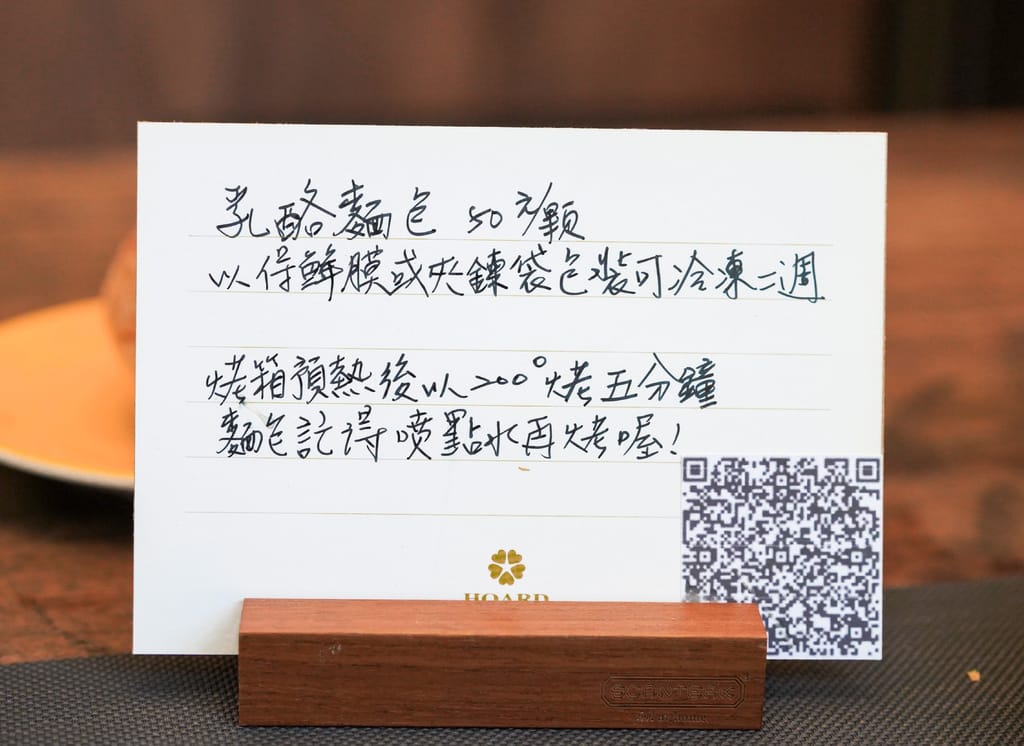 乳酪麵包 50元/顆
以保鮮膜或夾鍊袋包裝可冷凍二週
烤箱預熱後以200°烤五分鐘
麵包記得噴點水再烤喔!
HOARD
SCANTEAK